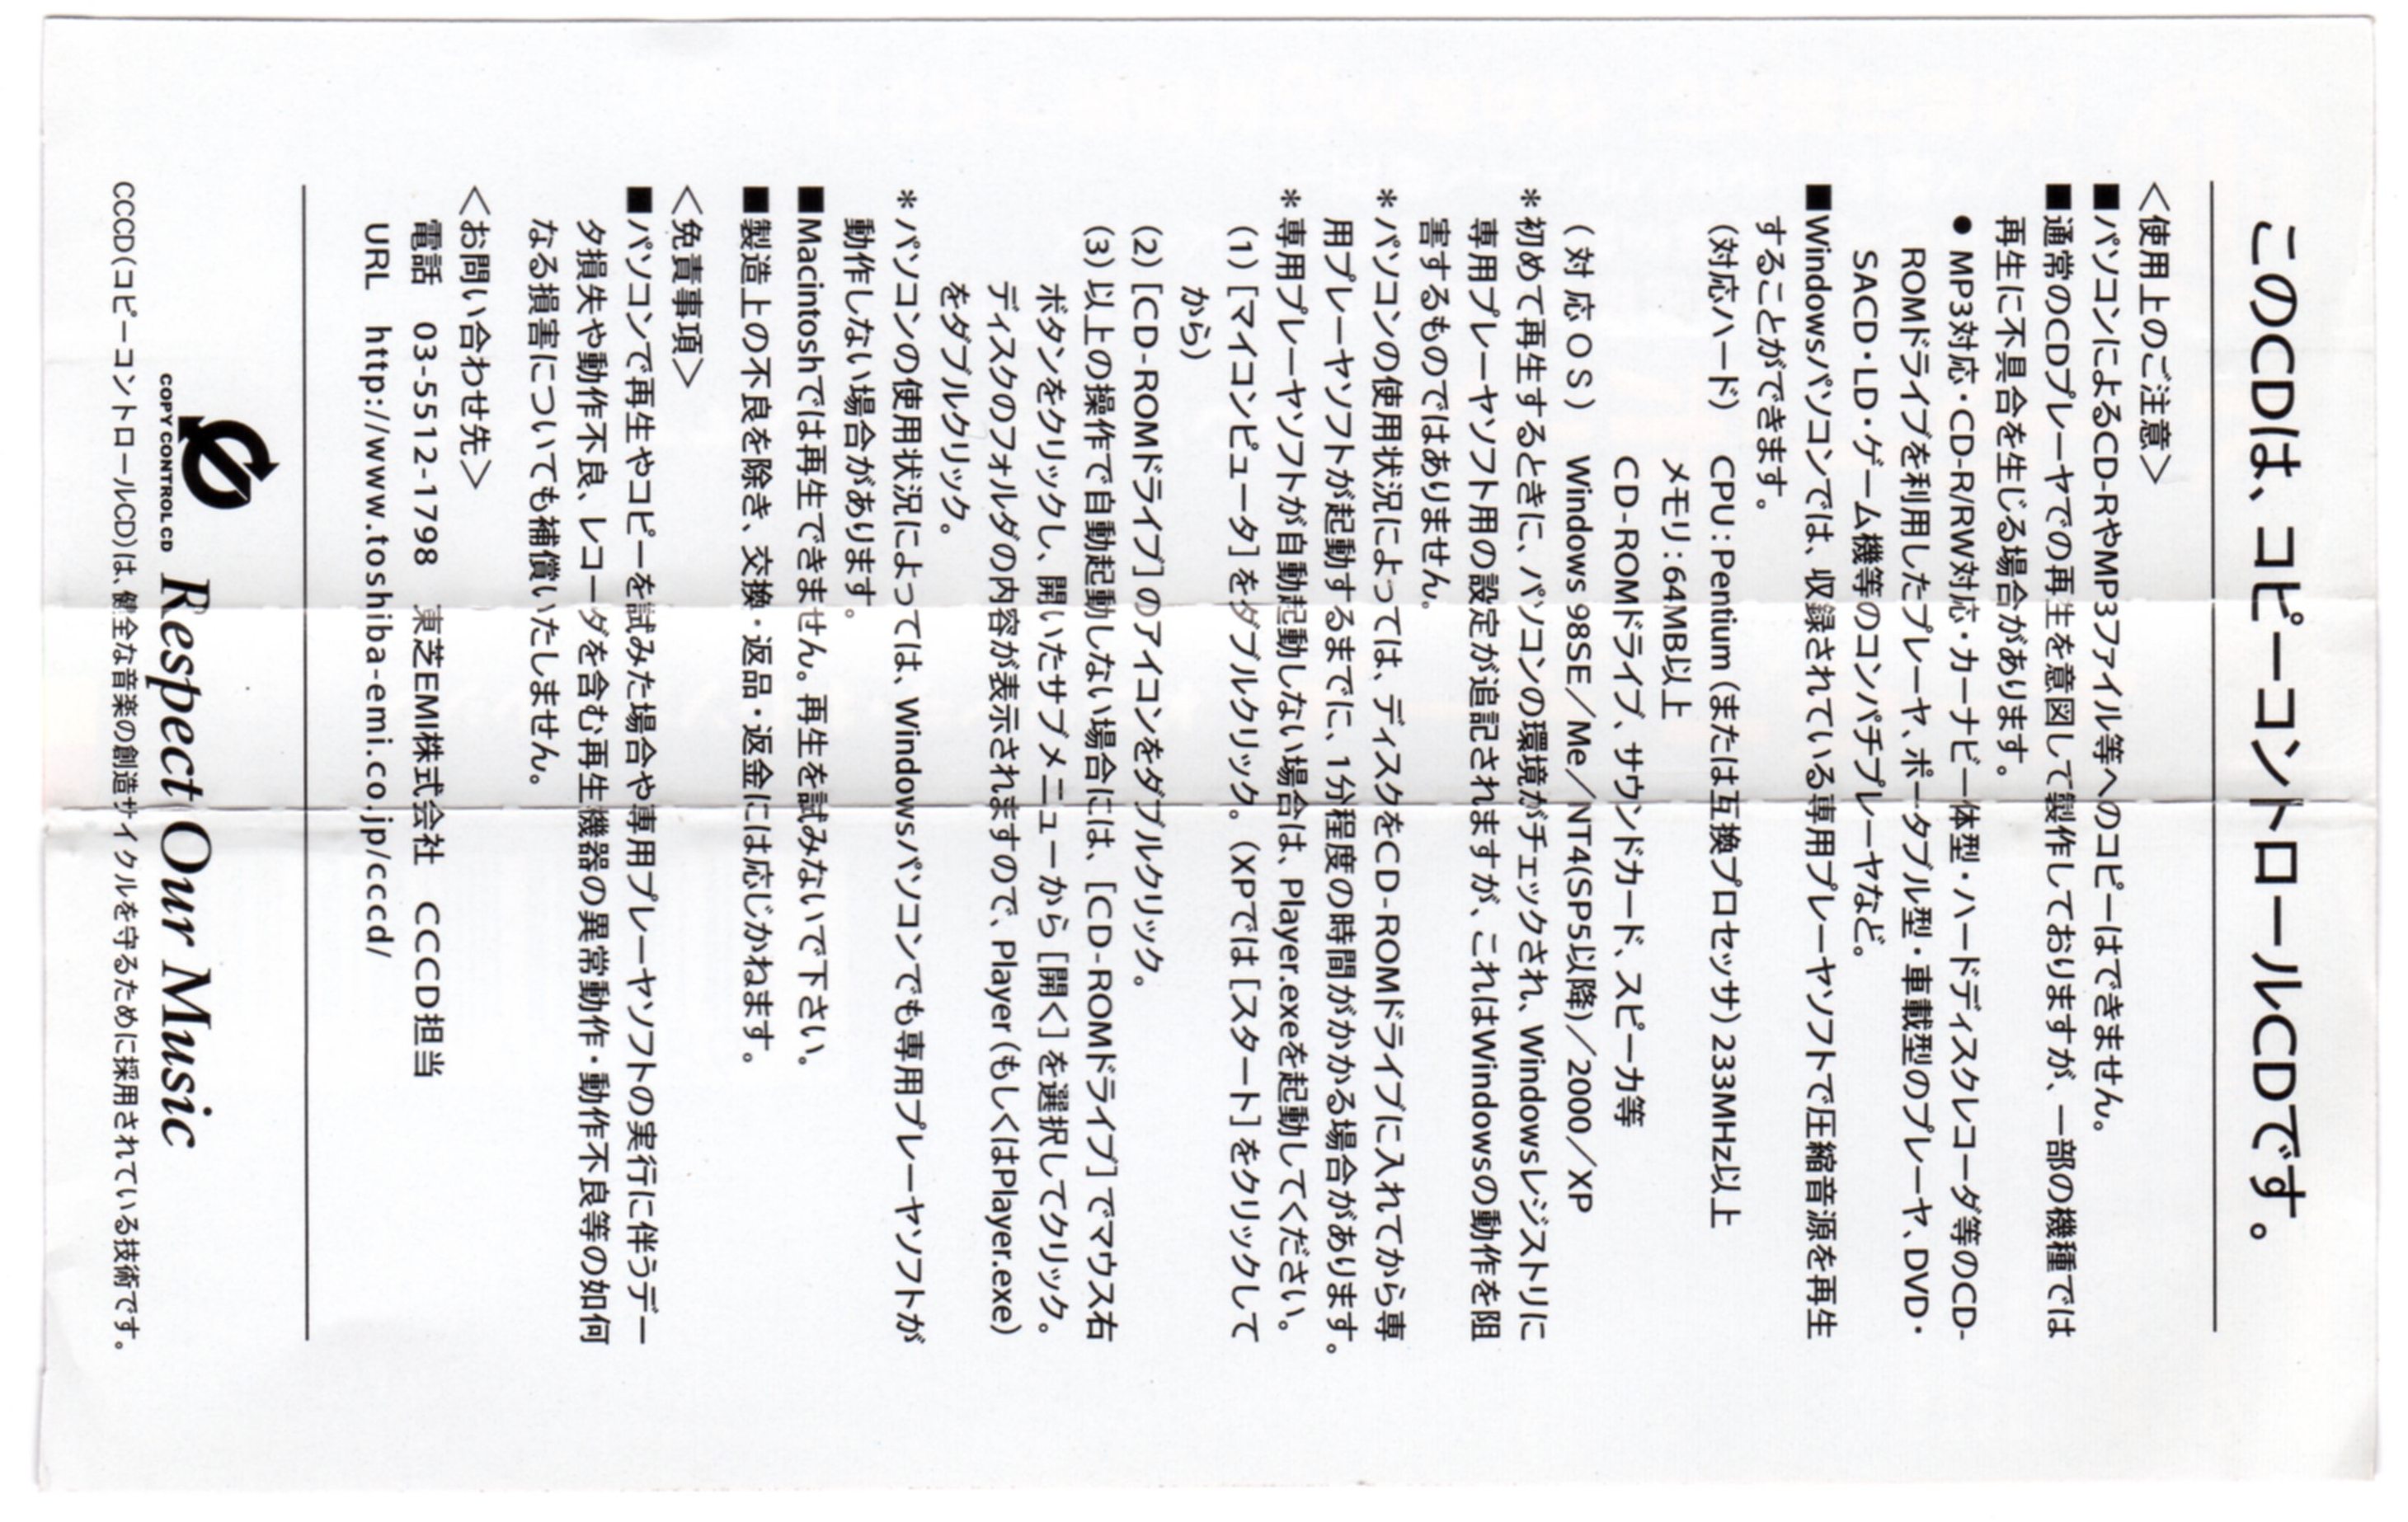 このCDは、コピーコントロールCDです。
<使用上のご注意>
■パソコンによるCD-RやMP3ファイル等へのコピーはできません。
■通常のCDプレーヤでの再生を意図して製作しておりますが、一部の機種では
再生に不具合を生じる場合があります。
● MP3対応・CD-R/RW対応・カーナビ一体型・ハードディスクレコーダ等のCD-
ROMドライブを利用したプレーヤ、ポータブル型・車載型のプレーヤ、DVD・
SACD・LD・ゲーム機等のコンパチプレーヤなど。
■Windowsパソコンでは、収録されている専用プレーヤソフトで圧縮音源を再生
することができます。
(対応ハード) CPU:Pentium(または互換プロセッサ)233MHz以上
メモリ:64MB以上
CD-ROMドライブ、サウンドカード、スピーカ等
(対応OS) Windows 98SE/Me/NT4(SP5以降)/2000/XP
*初めて再生するときに、パソコンの環境がチェックされ、Windowsレジストリに
専用プレーヤソフト用の設定が追記されますが、これはWindowsの動作を阻
害するものではありません。
*パソコンの使用状況によっては、ディスクをCD-ROMドライブに入れてから専
用プレーヤソフトが起動するまでに、1分程度の時間がかかる場合があります。
*専用プレーヤソフトが自動起動しない場合は、Player.exeを起動してください。
(1)[マイコンピュータ]をダブルクリック。(XPでは[スタート]をクリックして
から)
(2)[CD-ROMドライブ]のアイコンをダブルクリック。
(3)以上の操作で自動起動しない場合には、[CD-ROMドライブ]でマウス右
ボタンをクリックし、開いたサブメニューから[開く]を選択してクリック。
ディスクのフォルダの内容が表示されますので、Player(もしくはPlayer.exe)
をダブルクリック。
*パソコンの使用状況によっては、Windowsパソコンでも専用プレーヤソフトが
動作しない場合があります。
■Macintoshでは再生できません。再生を試みないで下さい。
■製造上の不良を除き、交換・返品・返金には応じかねます。
<免責事項>
■パソコンで再生やコピーを試みた場合や専用プレーヤソフトの実行に伴うデー
タ損失や動作不良、レコーダを含む再生機器の異常動作・動作不良等の如何
なる損害についても補償いたしません。
<お問い合わせ先>
電話 03-5512-1798 東芝EMI株式会社 CCCD担当
URL http://www.toshiba-emi.co.jp/cccd/
COPY CONTROL CD Respect Our Music
CCCD(コピーコントロールCD)は、健全な音楽の創造サイクルを守るために採用されている技術です。